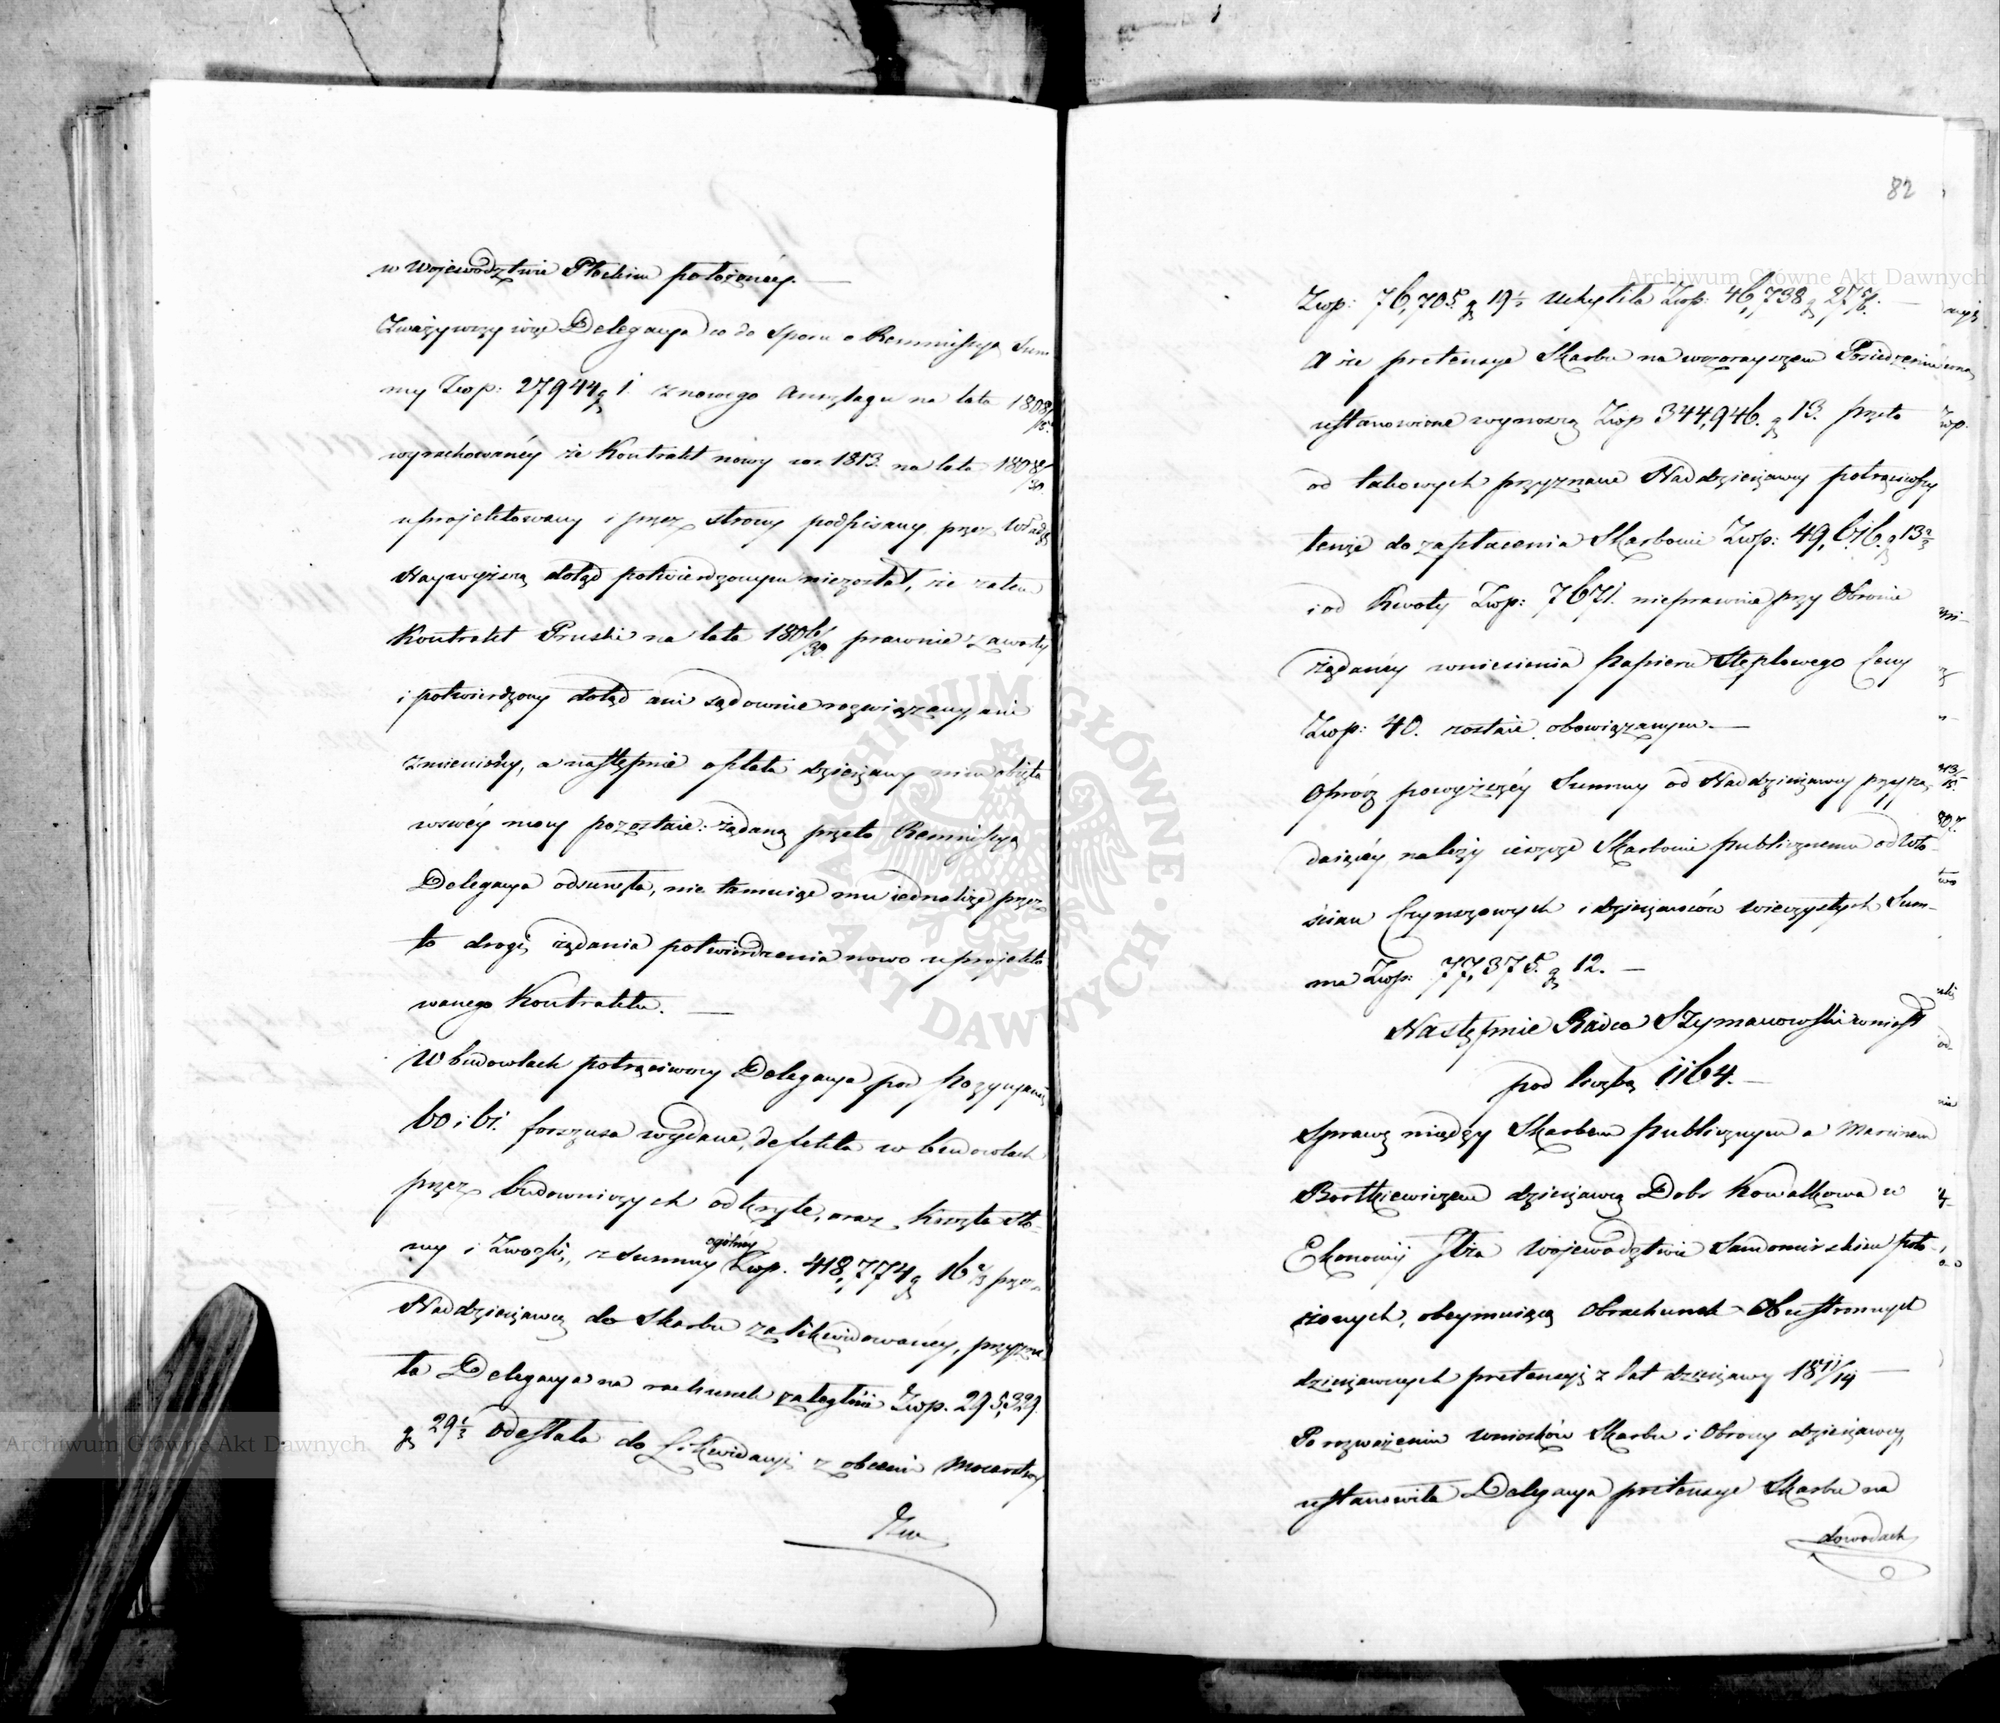 w Województwie Płockim położonéy. —
Zważywszy więc Delegacya co do Sporu o Remmissyą Sum
my Złłp: 27944 g 1. z nowego Anszlagu na lata 1808/15.
wyrachowanéy że Kontrakt nowy w r. 1813. na lata 1808/30.
uprojektowany i przez strony podpisany przez Władzę
Naywyższą dotąd potwierdzonym niezostał, że zatem
Kontrakt Pruski na lata 1806/30. prawnie zawarty
i potwierdzony dotąd ani sądownie rozwiązany, ani
zmieniony, a następnie opłata dzierżawy nim objęta
w swéy mocy pozostaie: żądaną przeto Remmissyą
Delegacya odsunęła, nie tamuiąc mu iednakże przez
to drogi, żądania potwierdzenia nowo uprojekto
wanego Kontraktu. —
W budowlach potrąciwszy Delegacya pod pozycyami
60 i 61. forszusa wydane, defekta w budowlach
przez budowniczych odkryte, oraz koszta sło-
my i Zwózki, z Summy ogólnéy Złłp. 418,774 g 16 2/3 przez
Naddzierżawcę do Skarbu zalikwidowanéy, przyzna
ła Delegacya na rachunek zaległości Złłp. 295,329.
g 29 1/3 odesłała do Likwidacyi z obcemi Mocarstwy
Złłp
82
Archiwum Główne Akt Dawnych
Złłp: 76,705. g 19 1/2 uchyliła Złłp: 46,738 g 27 5/6. —
A że pretensye Skarbu na wczorayszem Posiedzeniu
ustanowione wynoszą Złłp 344,946. g 13. przeto
od takowych przyznane Naddzierżawcy potrąciwszy
tenże do zapłacenia Skarbowi Złłp: 49,616. g 13 2/3
i od Kwoty Złłp: 7671. nieprawnie przy Obronie
żądanéy wniesienia papieru Stęplowego Ceny
Złłp: 40. zostaie obowiązanym. —
Oprócz powyższéy Summy od Naddzierżawcy przypa-
daiącéy, należy ieszcze Skarbowi publicznemu od Wło-
ścian Czynszowych i dzierżawców wieczystych Sum-
ma Złłp: 77,375. g 12. —
Następnie Radca Szymanowski wniosł
pod liczbą 1164. —
Sprawę między Skarbem publicznym a Marcinem
Bortkiewiczem dzierżawcą Dobr Kowalkowa w
Ekonomij Iłża Województwie Sandomirskim poło-
żonych, obeymuiącą Obrachunek Obustronnych
dzierżawnych pretensyi z lat dzierżawy 1811/14 —
Po rozważeniu wniosków Skarbu i Obrony dzierżawcy,
ustanowiła Delegacya pretensye Skarbu na
dowodach
ARCHIWUM GŁÓWNE AKT DAWNYCH
Archiwum Główne Akt Dawnych